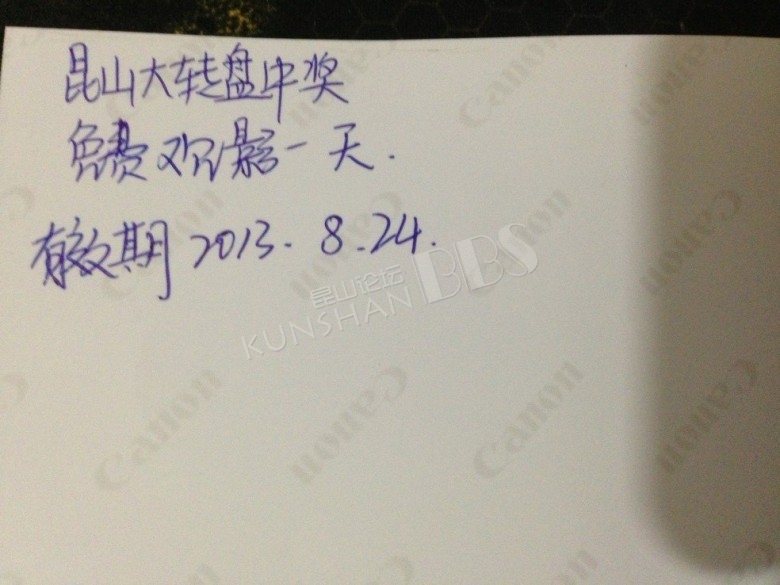 昆山大转盘中奖
免费观影一天.
有效期 2013. 8.24.
昆山论坛
KUNSHAN BBS
Canon
Canon
Canon
Canon
Canon
Canon
Canon
Canon
Canon
Canon
Canon